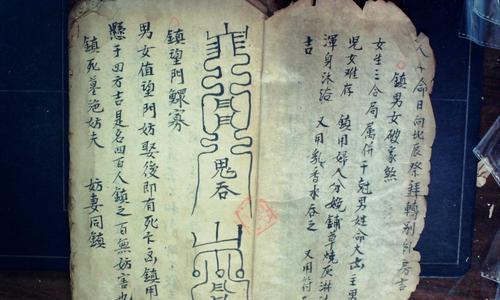 命日向北辰祭拜轉別自
鎮男女破家煞
女生三合局属併干剋男姓命大凶主男
兒女難存 鎮用婦人分娩鋪草燒灰淋
渾身沐浴 又用乳香水吞之 又用符
吉
鬼吞
鎮望門鰥寡
男女值望門妨娶後即有死亡凶鎮用
懸于四方吉是名四百人鎮之百無妨害也
鎮死墓絶妨夫 妨妻同鎮